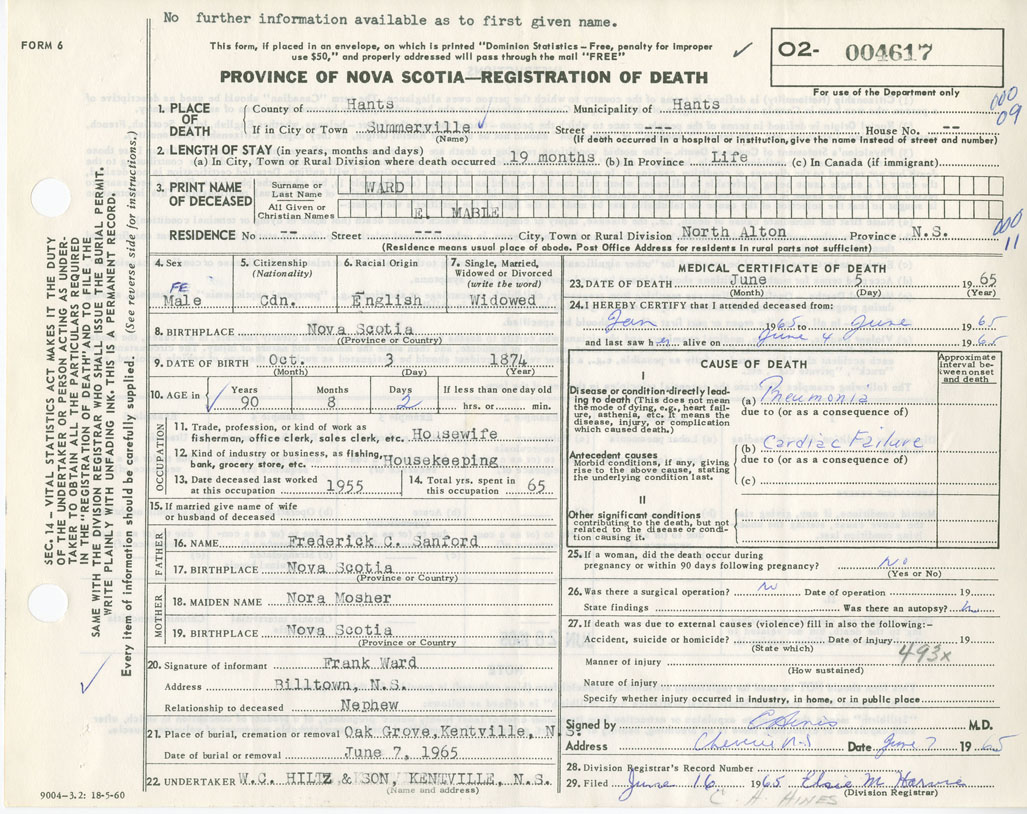 No further information available as to first given name.
FORM 6
This form, if placed in an envelope, on which is printed "Dominion Statistics – Free, penalty for improper
use $50," and properly addressed will pass through the mail "FREE"
02- 004617
PROVINCE OF NOVA SCOTIA—REGISTRATION OF DEATH
For use of the Department only
000
09
1. PLACE OF DEATH
County of Hants Municipality of Hants
If in City or Town Summerville Street --- House No. --
(Name) (If death occurred in a hospital or institution, give the name instead of street and number)
2. LENGTH OF STAY (in years, months and days)
(a) In City, Town or Rural Division where death occurred 19 months (b) In Province Life (c) In Canada (if immigrant)
3. PRINT NAME OF DECEASED
Surname or Last Name WARD
All Given or Christian Names E. MABLE
000
11
RESIDENCE No -- Street --- City, Town or Rural Division North Alton Province N.S.
(Residence means usual place of abode. Post Office Address for residents in rural parts not sufficient)
4. Sex
FE
Male
5. Citizenship
(Nationality)
Cdn.
6. Racial Origin
English
7. Single, Married,
Widowed or Divorced
(write the word)
Widowed
8. BIRTHPLACE Nova Scotia
(Province or Country)
9. DATE OF BIRTH Oct. 3 1874
(Month) (Day) (Year)
10. AGE in
Years Months Days If less than one day old
90 8 2 hrs. or min.
OCCUPATION
11. Trade, profession, or kind of work as
fisherman, office clerk, sales clerk, etc. Housewife
12. Kind of industry or business, as fishing,
bank, grocery store, etc. Housekeeping
13. Date deceased last worked
at this occupation 1955
14. Total yrs. spent in
this occupation 65
15. If married give name of wife
or husband of deceased
FATHER
16. NAME Frederick C. Sanford
17. BIRTHPLACE Nova Scotia
(Province or Country)
MOTHER
18. MAIDEN NAME Nora Mosher
19. BIRTHPLACE Nova Scotia
(Province or Country
20. Signature of informant Frank Ward
Address Billtown, N.S.
Relationship to deceased Nephew
21. Place of burial, cremation or removal Oak Grove, Kentville, N.S.
Date of burial or removal June 7, 1965
22. UNDERTAKER W.C. HILTZ & SON, KENTVILLE, N.S.
(Name and address)
MEDICAL CERTIFICATE OF DEATH
23. DATE OF DEATH June 5 1965
(Month) (Day) (Year)
24. I HEREBY CERTIFY that I attended deceased from:
Jan 1965 to June 1965
and last saw her alive on June 4 1965
CAUSE OF DEATH
Approximate
interval between
onset
and death
I
Disease or condition directly leading
to death (This does not mean
the mode of dying, e.g., heart failure,
asthenia, etc. It means the
disease, injury, or complication
which caused death.)
(a) Pneumonia
due to (or as a consequence of)
Antecedent causes
Morbid conditions, if any, giving
rise to the above cause, stating
the underlying condition last.
(b) Cardiac Failure
due to (or as a consequence of)
(c)
II
Other significant conditions
contributing to the death, but not
related to the disease or condition
causing it.
25. If a woman, did the death occur during
pregnancy or within 90 days following pregnancy? No
(Yes or No)
26. Was there a surgical operation? No Date of operation 19
State findings Was there an autopsy? No
27. If death was due to external causes (violence) fill in also the following:–
Accident, suicide or homicide? Date of injury 19
(State which)
493x
Manner of injury
(How sustained)
Nature of injury
Specify whether injury occurred in industry, in home, or in public place
Signed by C Hines M.D.
Address Date June 7 1965
28. Division Registrar's Record Number
29. Filed June 16 1965 Elsie M Harvie
(Division Registrar)
C. A. HINES
SEC. 14 – VITAL STATISTICS ACT MAKES IT THE DUTY
OF THE UNDERTAKER OR PERSON ACTING AS UNDERTAKER
TO OBTAIN ALL THE PARTICULARS REQUIRED
IN THE "REGISTRATION OF DEATH" AND TO FILE THE
SAME WITH THE DIVISION REGISTRAR WHO SHALL ISSUE THE BURIAL PERMIT.
WRITE PLAINLY WITH UNFADING INK - THIS IS A PERMANENT RECORD.
Every item of information should be carefully supplied. (See reverse side for instructions.)
9004-3.2: 18-5-60